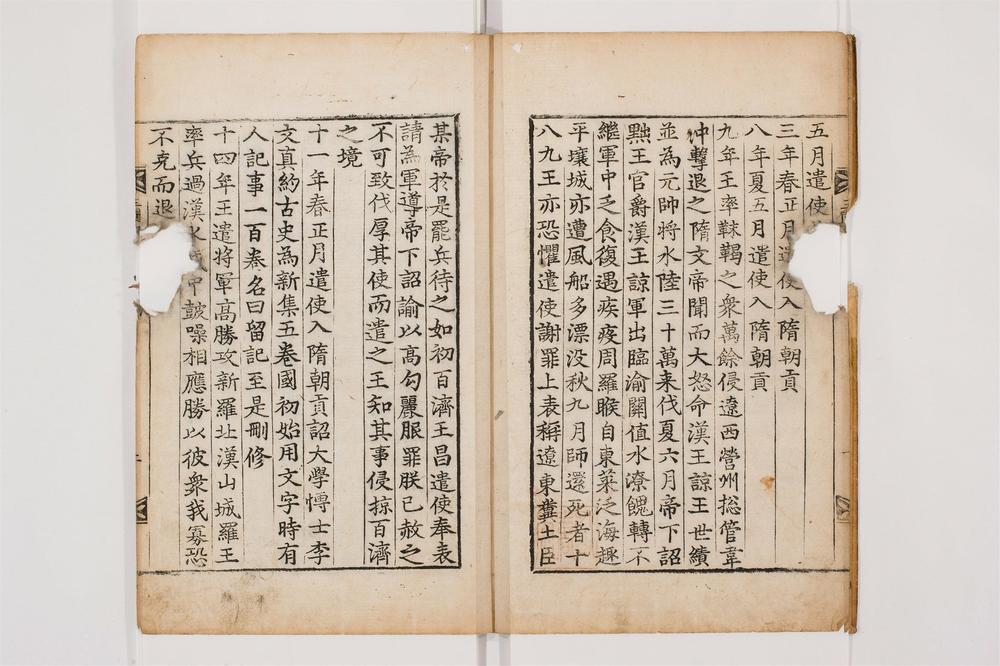 五月遣使
三年春正月遣使入隋朝貢
八年夏五月遣使入隋朝貢
九年王率靺鞨之衆萬餘侵遼西營州揔管韋
冲擊退之隋文帝聞而大怒命漢王諒王世績
並為元帥將水陸三十萬来伐夏六月帝下詔
黜王官爵漢王諒軍出臨渝關值水潦餽轉不
繼軍中乏食復遇疾疫周羅睺自東萊泛海趣
平壤城亦遭風船多漂没秋九月師還死者十
八九王亦恐懼遣使謝罪上表稱遼東糞土臣
某帝於是罷兵待之如初百濟王昌遣使奉表
請為軍導帝下詔諭以高句麗服罪朕已赦之
不可致伐厚其使而遣之王知其事侵掠百濟
之境
十一年春正月遣使入隋朝貢詔大學博士李
文真約古史為新集五卷國初始用文字時有
人記事一百卷名曰留記至是刪修
十四年王遣將軍高勝攻新羅北漢山城羅王
率兵過漢水城中鼓噪相應勝以彼衆我寡恐
不克而退